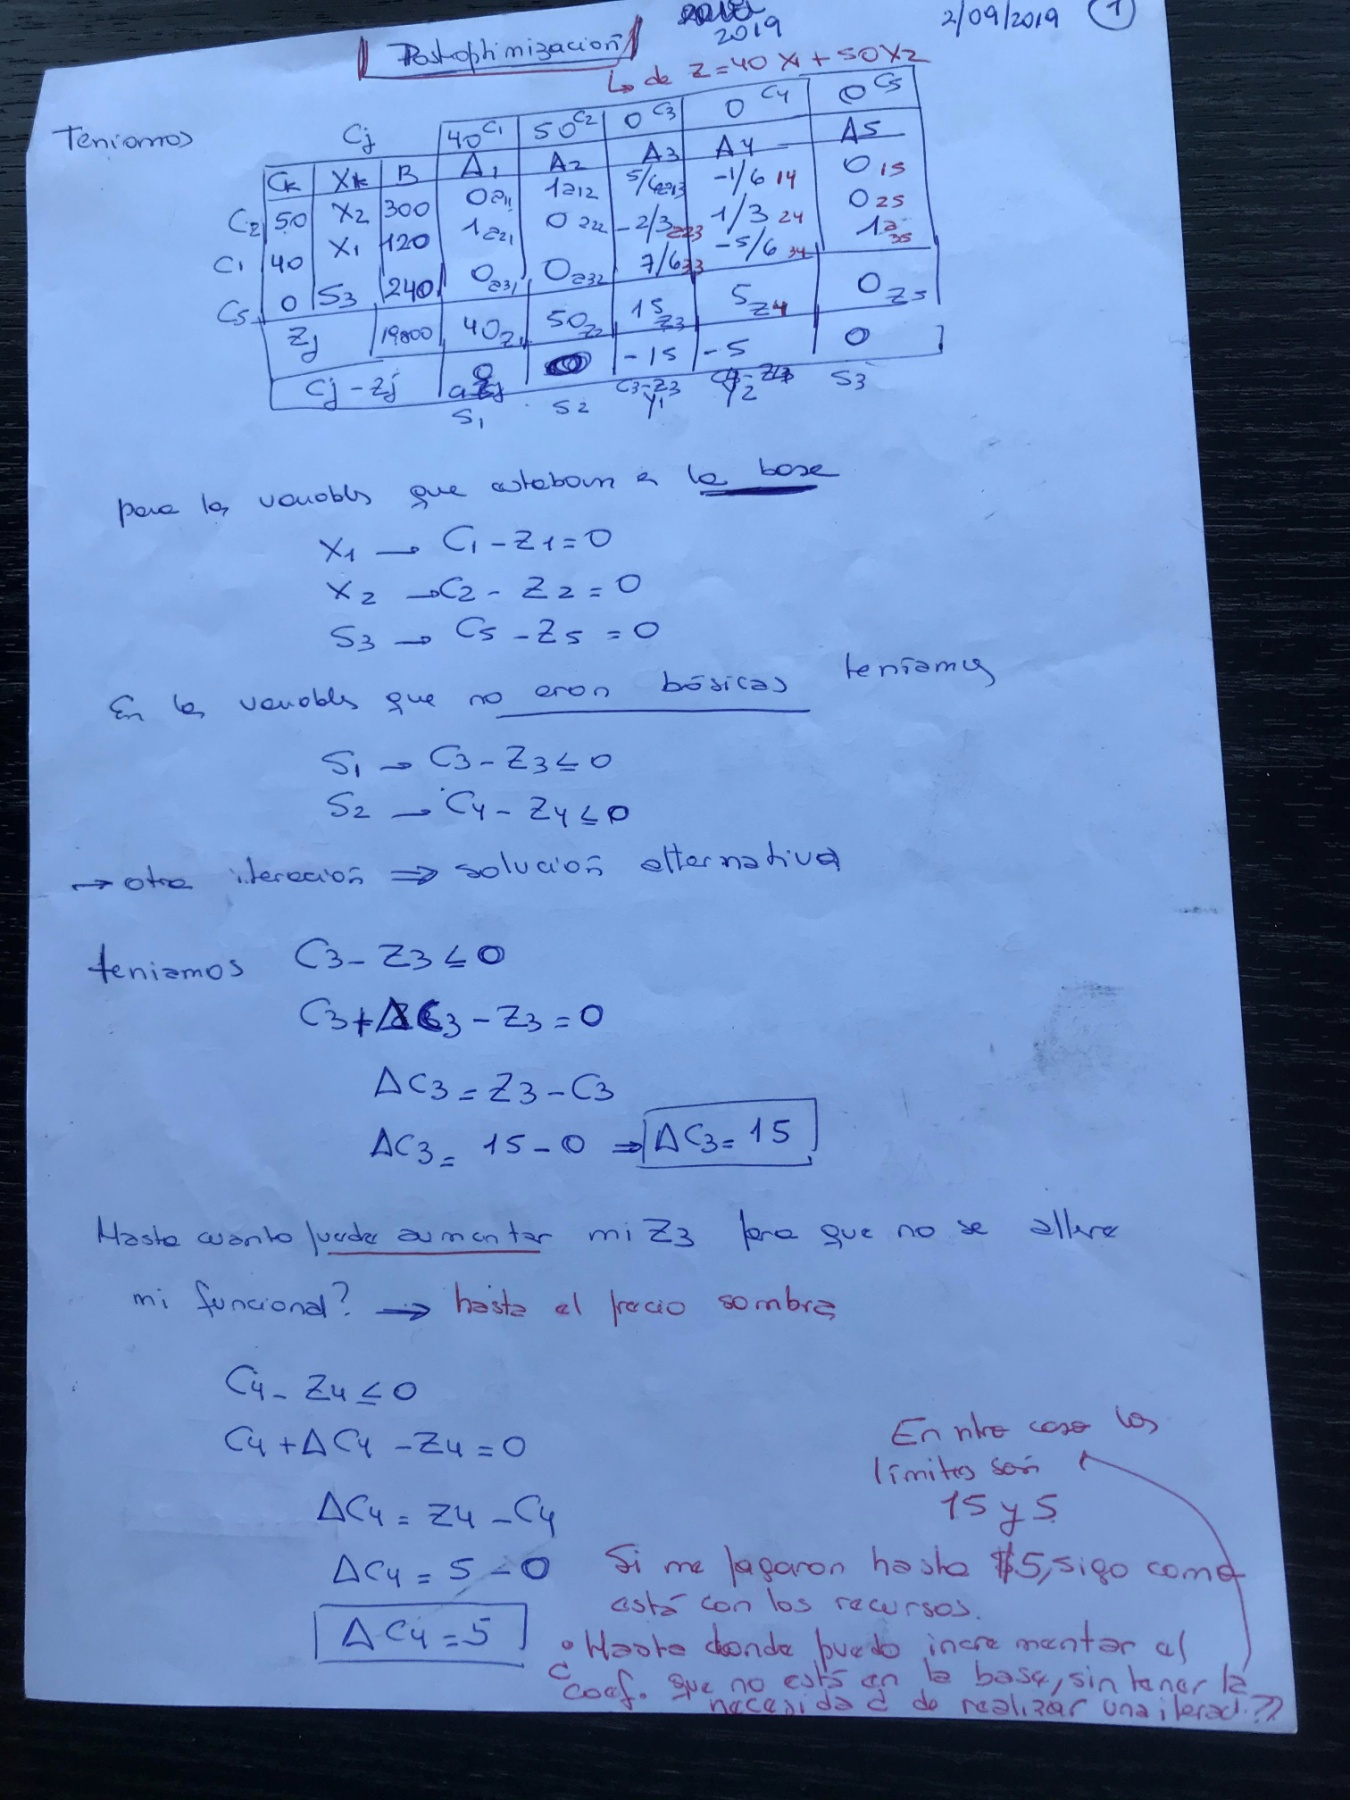 2019
2/09/2019 1
Postoptimización
↳ de Z=40X1+50X2
Teníamos Cj 40 C1 50 C2 0 C3 0 C4 0 C5
Ck Xk B A1 A2 A3 A4 A5
C2 50 X2 300 0 a11 1 a12 5/6 a13 -1/6 14 0 15
C1 40 X1 120 1 a21 0 a22 -2/3 a23 1/3 24 0 25
C5 0 S3 240 0 a31 0 a32 7/6 33 -5/6 34 1 a35
Zj 19800 40 Z1 50 Z2 15 Z3 5 Z4 0 Z5
Cj-Zj 0 -15 -5 0
S1 S2 C3-Z3 Y1 Y2 S3
para las variables que estaban en la base
X1 → C1-Z1=0
X2 → C2-Z2=0
S3 → C5-Z5=0
En las variables que no eran básicas teníamos
S1 → C3-Z3≤0
S2 → C4-Z4≤0
→ otra iteración ⇒ solución alternativa
teníamos C3-Z3≤0
C3+ΔC3-Z3=0
ΔC3=Z3-C3
ΔC3=15-0 ⇒ ΔC3=15
Hasta cuanto puede aumentar mi Z3 para que no se altere
mi funcional? → hasta el precio sombra
C4-Z4≤0
C4+ΔC4-Z4=0
ΔC4=Z4-C4
ΔC4=5-0
ΔC4=5
En ntro caso los
límites son
15 y 5
Si me pagaran hasta $5, sigo como
está con los recursos.
• Hasta donde puedo incrementar el
coef. que no está en la base, sin tener la
necesidad de realizar una iterac.?